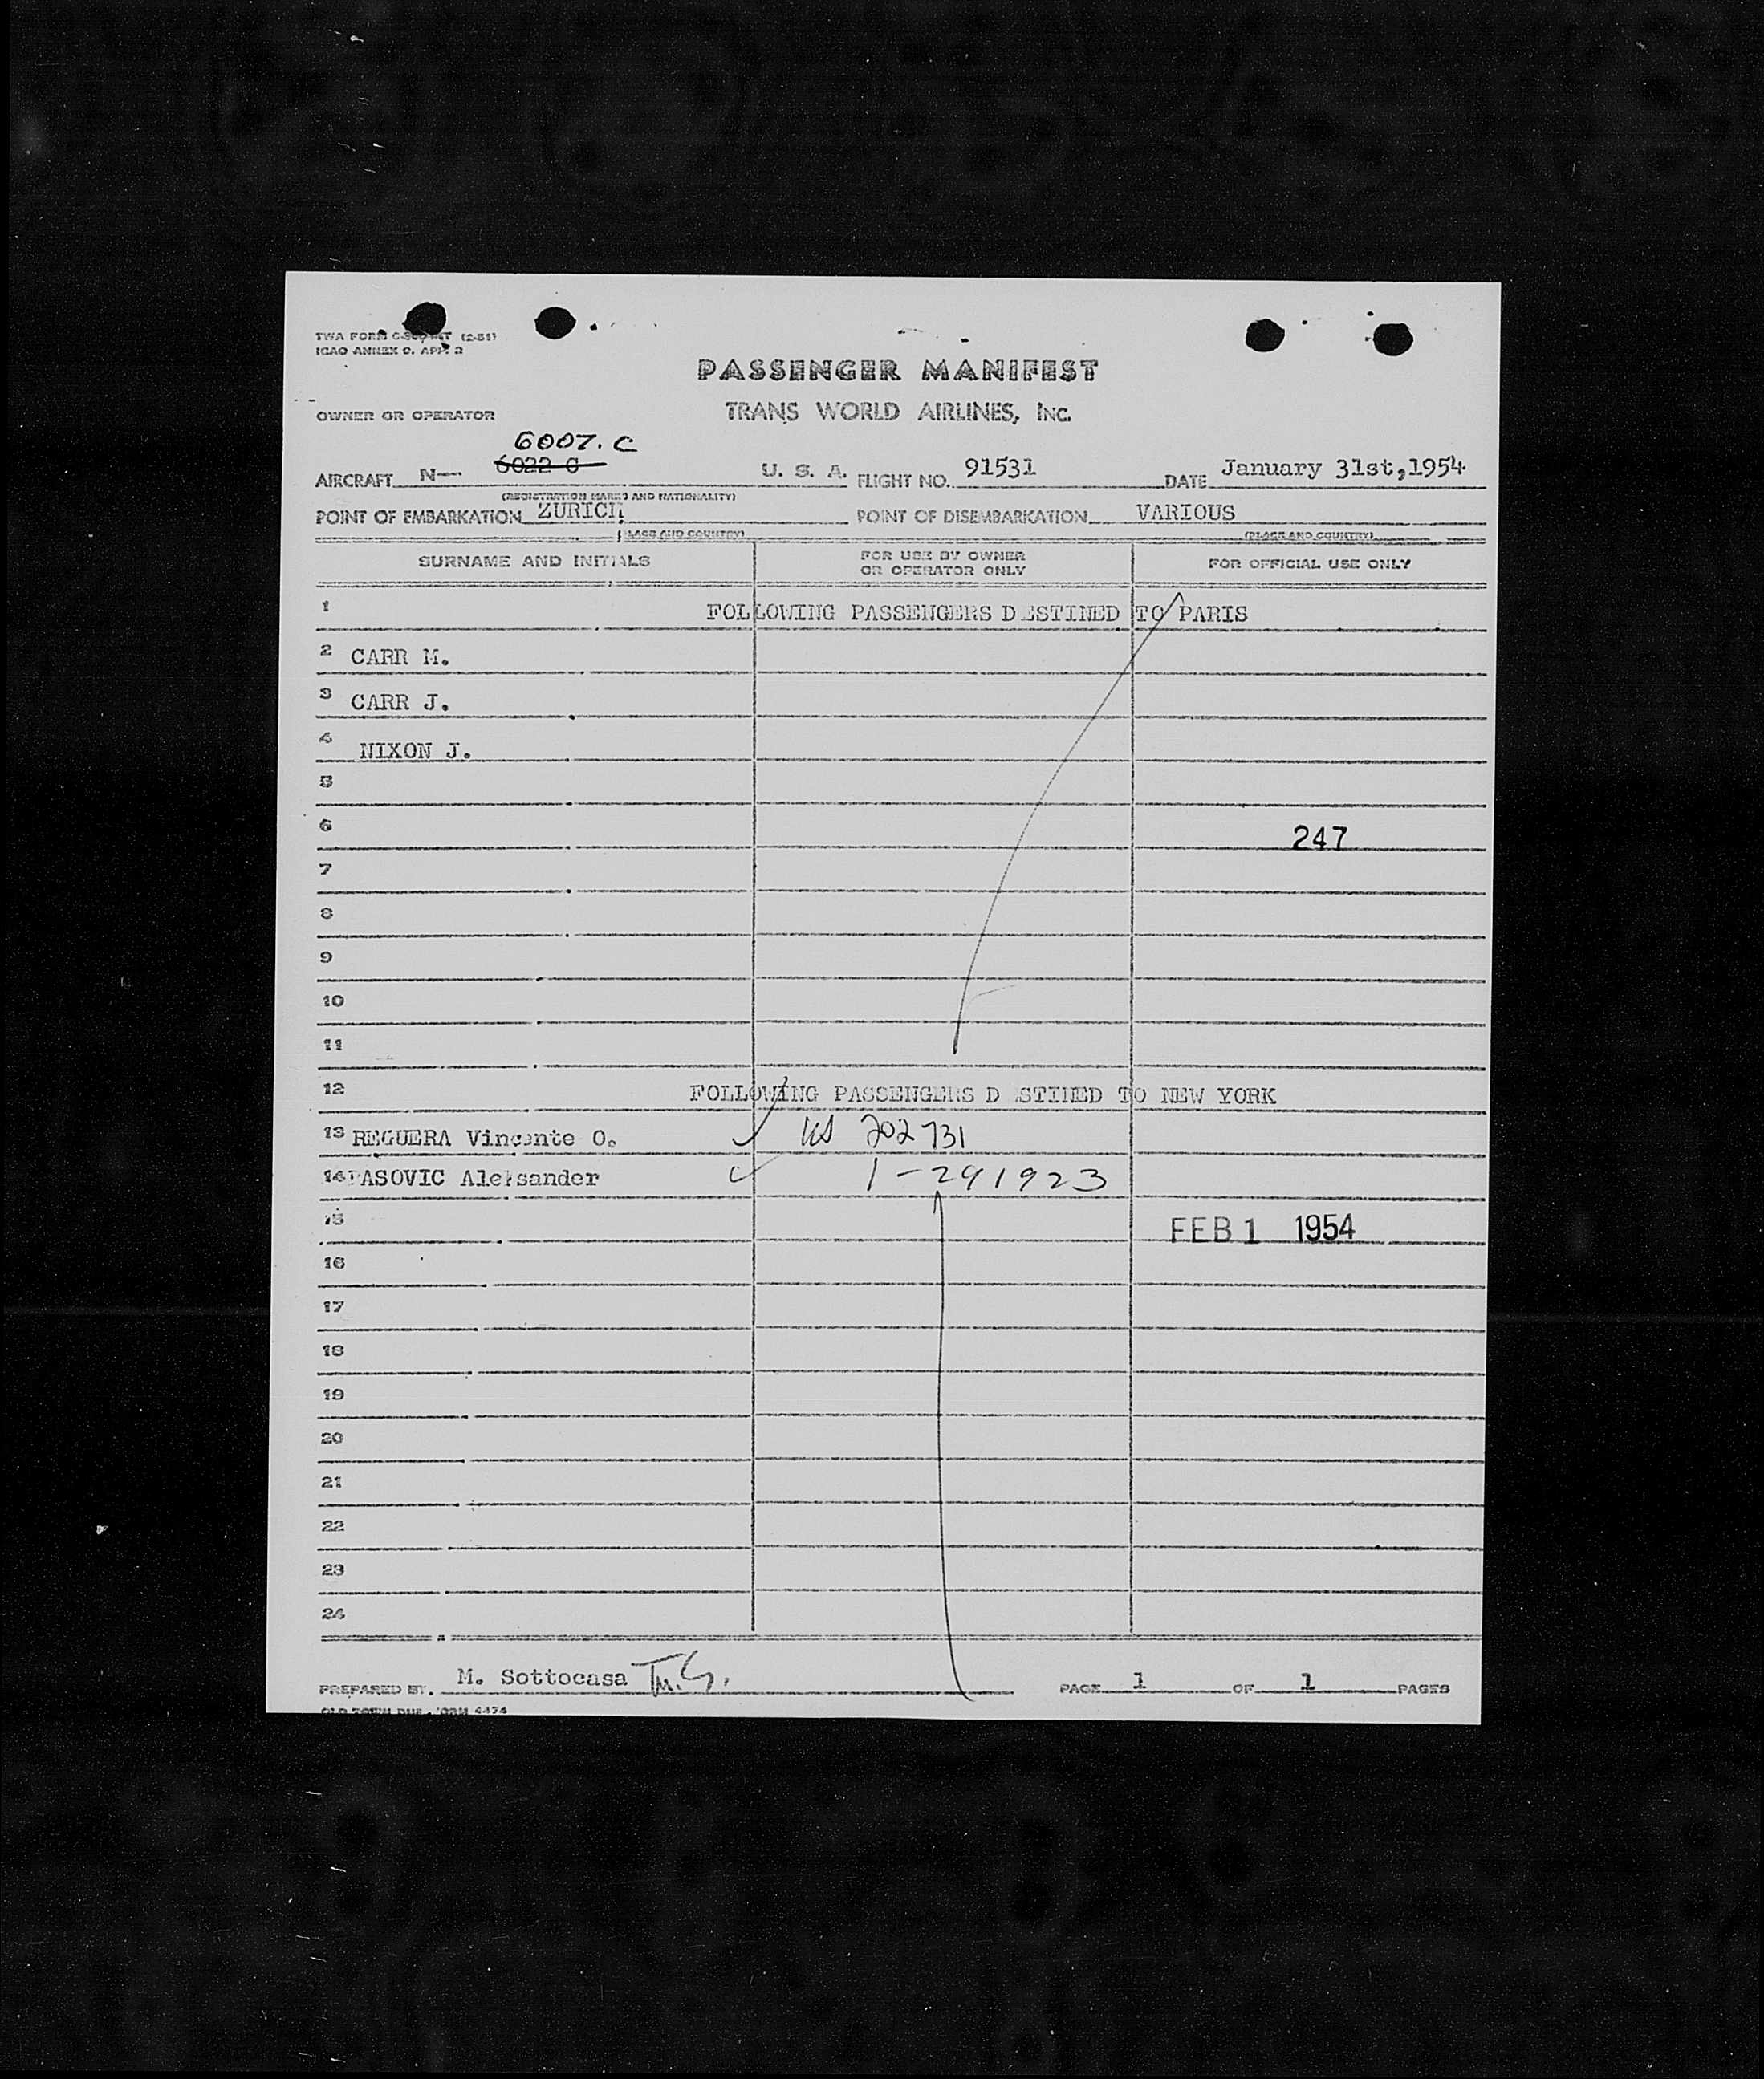 TWA FORM (2-51)
ICAO ANNEX 9. APP. 2
PASSENGER MANIFEST
OWNER OR OPERATOR TRANS WORLD AIRLINES, INC.
6007. C
AIRCRAFT N— 6022 C U. S. A. FLIGHT NO. 91531 DATE January 31st,1954
(REGISTRATION MARKS AND NATIONALITY)
POINT OF EMBARKATION ZURICH POINT OF DISEMBARKATION VARIOUS
(PLACE AND COUNTRY) (PLACE AND COUNTRY)
SURNAME AND INITIALS FOR USE BY OWNER OR OPERATOR ONLY FOR OFFICIAL USE ONLY
1 FOLLOWING PASSENGERS DESTINED TO PARIS
2 CARR M.
3 CARR J.
4 NIXON J.
5
6 247
7
8
9
10
11
12 FOLLOWING PASSENGERS D STINED TO NEW YORK
13 REGUERA Vincente O. US 202731
14 PASOVIC Aleksander 1-291923
15 FEB 1 1954
16
17
18
19
20
21
22
23
24
PREPARED BY. M. Sottocasa PAGE 1 OF 1 PAGES
OLD TOWN FORM 4474